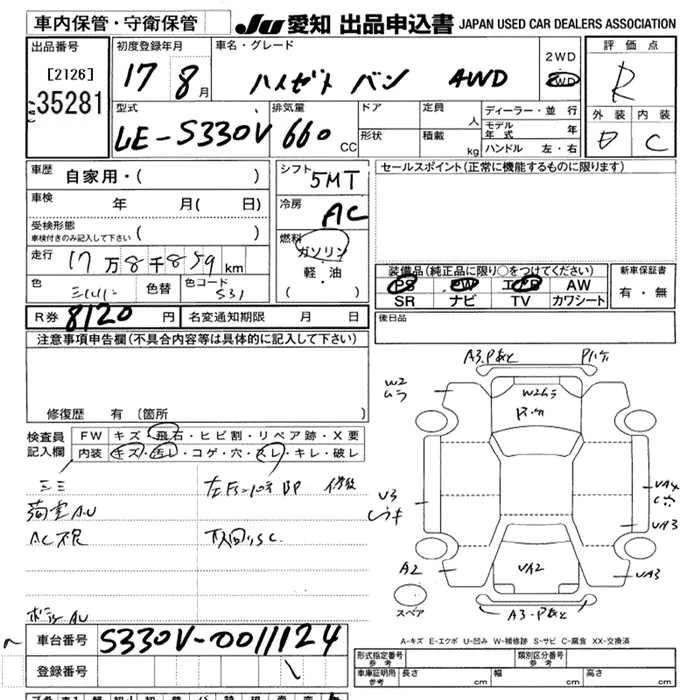 車内保管・守衛保管
JU 愛知 出品申込書 JAPAN USED CAR DEALERS ASSOCIATION
出品番号 初度登録年月 車名・グレード 2WD 評価点
[2126] 17 8月 ハイゼット バン 4WD 4WD R
35281
型式 排気量 ドア 定員 人 ディーラー・並行 外装 内装
LE-S330V 660 CC 形状 積載 kg モデル年式 年 D C
ハンドル 左・右
車歴 自家用・( ) シフト 5MT セールスポイント(正常に機能するものに限ります)
車検 年 月( 日) 冷房 AC
受検形態
車検付きのみ記入して下さい ( ) 燃料 ガソリン・軽・油 ( )
走行 17万8千859km
装備品(純正品に限り○をつけてください) 新車保証書
色 シルバー 色替 色コード S31
PS PW エアB AW 有・無
SR ナビ TV カワシート
R券 8120円 名変通知期限 月 日 後日品
注意事項申告欄(不具合内容等は具体的に記入して下さい)
修復歴 有 〔箇所 〕
検査員記入欄 FW キズ・飛石・ヒビ割・リペア跡・X要
内装 キズ・汚レ・コゲ・穴・スレ・キレ・破レ
A3.Pあと
W2
ムラ
W2ムラ
U3
VA4
VA3
A2
VA2
VA3
スペア
A3-Pあと
荷室AU
AC不良
下回りSC.
車台番号 S330V-0011124
登録番号
A-キズ E-エクボ U-凹み W-補修跡 S-サビ C-腐食 XX-交換済
形式指定番号 参考 類別区分番号 参考
車庫証明用 参考 長さ cm 幅 cm 高さ cm